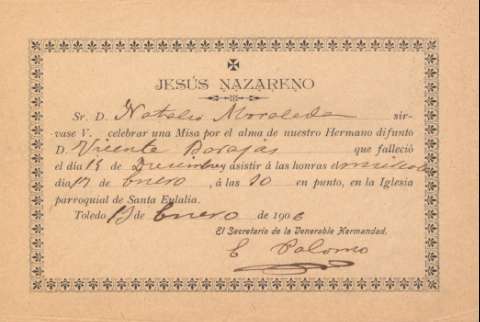 JESÚS NAZARENO
Sr. D. Natalio Moraleda sir-
vase V. celebrar una Misa por el alma de nuestro Hermano difunto
D. Vicente Barajas que falleció
el día 15 de y asistir á las honras el miércoles
día 17 de Enero, á las 10 en punto, en la Iglesia
parroquial de Santa Eulalia.
Toledo 13 de Enero de 1906
El Secretario de la Venerable Hermandad.
E Palomo